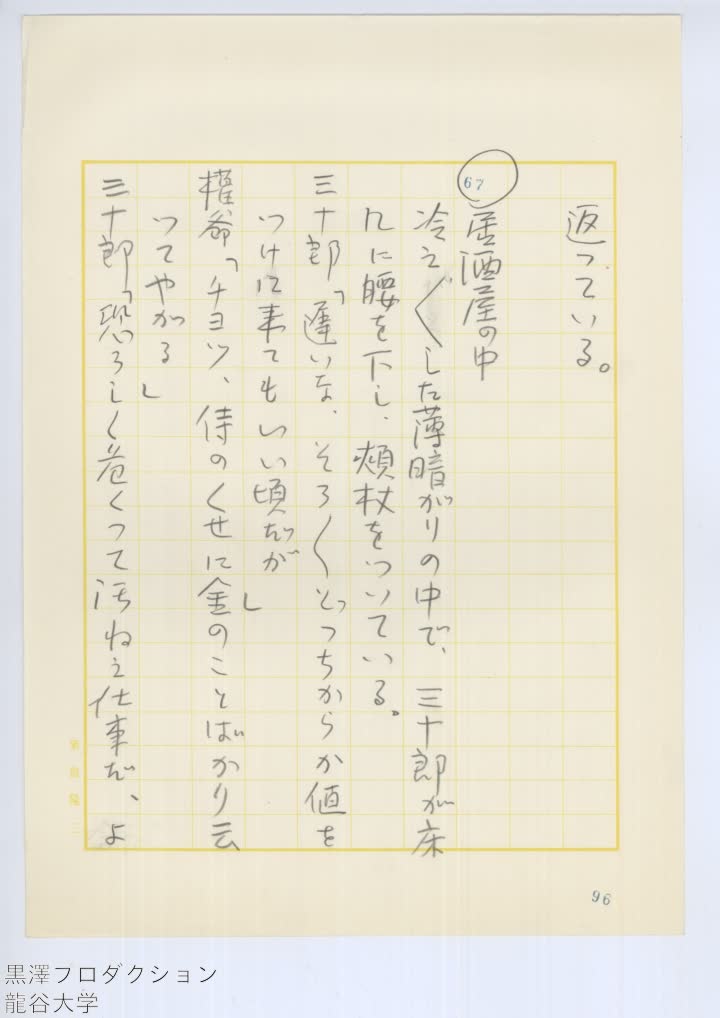 返つている。
67
居酒屋の中
冷え〱した薄暗がりの中で、三十郎が床
几に腰を下し、頬杖をついている。
三十郎「遅いな、そろ〱どつちからか値を
つけに来てもいい頃だが」
権爺「チヨツ、侍のくせに金のことばかり云
つてやがる」
三十郎「恐ろしく危くつて汚ねえ仕事だ、よ
96
黒澤プロダクション
龍谷大学